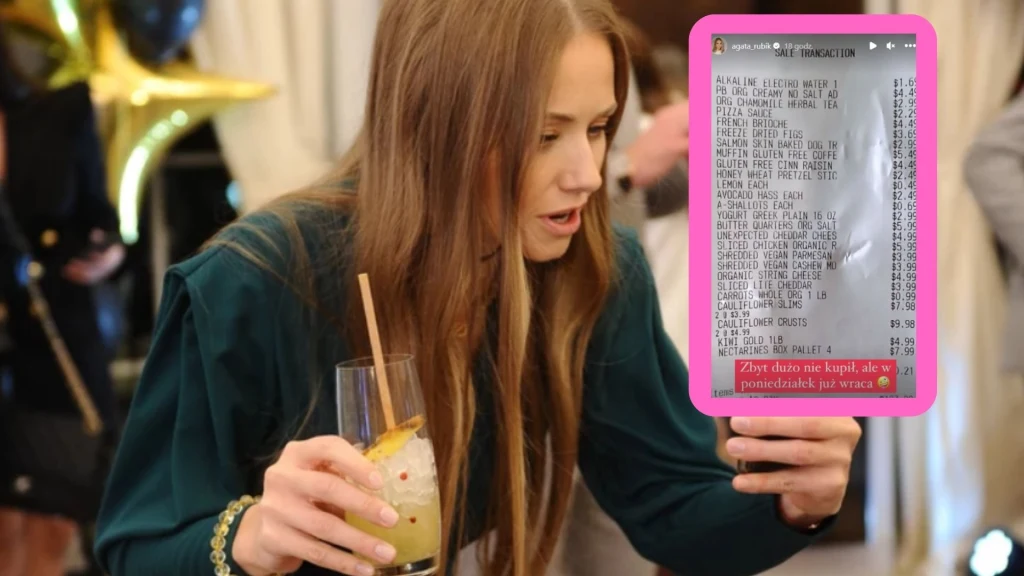 agata_rubik 10 godz.
SALE TRANSACTION
ALKALINE ELECTRO WATER 1 $1.69
PB ORG CREAMY NO SALT AD $4.49
ORG CHAMOMILE HERBAL TEA $2.99
PIZZA SAUCE $2.29
FRENCH BRIOCHE $4.49
FREEZE DRIED FIGS $3.69
SALMON SKIN BAKED DOG TR $2.99
MUFFIN GLUTEN FREE COFFE $5.49
GLUTEN FREE CINN RAISIN $4.49
HONEY WHEAT PRETZEL STIC $2.49
LEMON EACH $0.49
AVOCADO HASS EACH $2.49
A-SHALLOTS EACH $0.65
YOGURT GREEK PLAIN 16 OZ $2.99
BUTTER QUARTERS ORG SALT $5.99
UNEXPECTED CHEDDAR CHEES $4.99
SLICED CHICKEN ORGANIC R $5.99
SHREDDED VEGAN PARMESAN $3.99
SHREDDED VEGAN CASHEW MO $3.99
ORGANIC STRING CHEESE $4.99
SLICED LITE CHEDDAR $3.99
CARROTS WHOLE ORG 1 LB $0.99
CAULIFLOWER SLIMS $7.98
2 @ $3.99
CAULIFLOWER CRUSTS $9.98
2 @ $4.99
KIWI GOLD 1LB $4.99
NECTARINES BOX PALLET 4 $7.99
Zbyt dużo nie kupił, ale w
poniedziałek już wraca